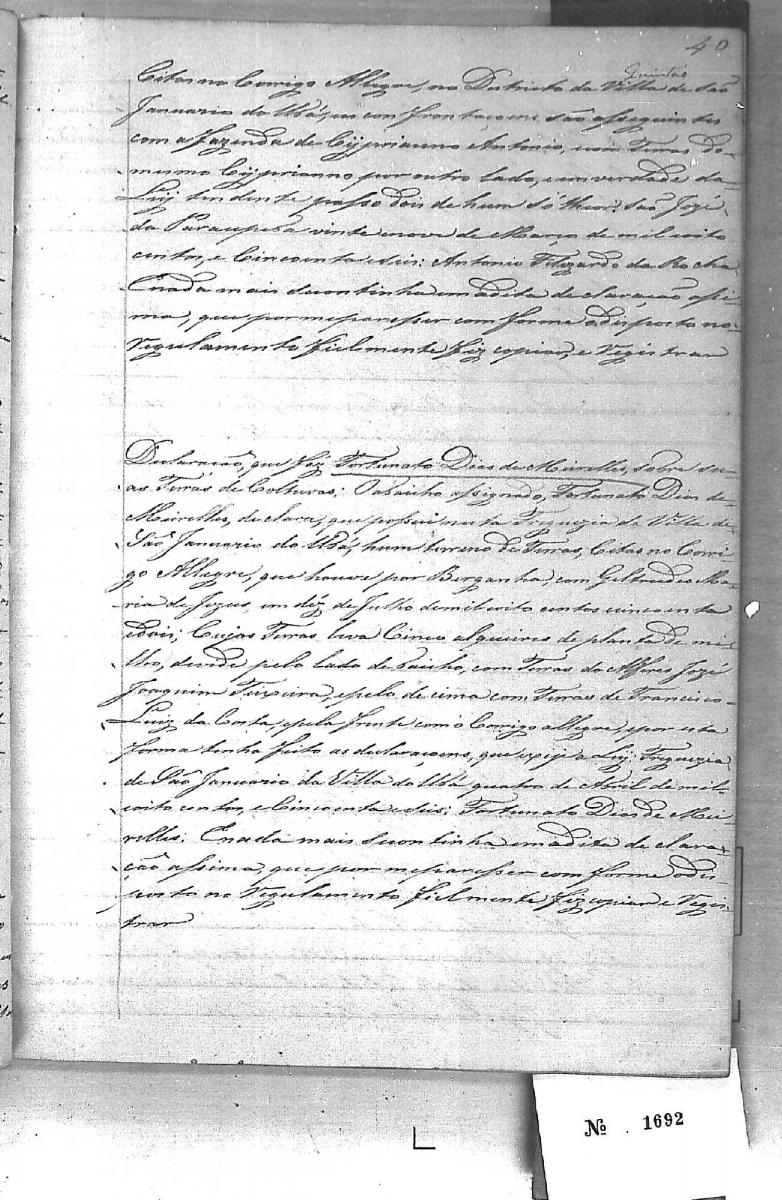 40
Quintão
Citas no Corrigo Allegre, no Districto da Villa de São
Januario do Ubá, cujas con frontaçoens são as seguintes
com a fazenda de Cyprianno Antonio, com Terras do
mesmo Cypriannno por outro lado, e em verdade da
Luy dois de hum só theor. São Jozé
da Paraupeba vinte e nove de Março de mil e oito
centos, e Cincoenta e seis: Antonio da Rocha
E nada mais se continha em a dita declaração assi
ma, que por me paresser com forme o disposto no
Regulamento fielmente fiz copiar, e Registrar
Declaração, que faz Fortunato Dias de Meirelles, sobre su-
as Terras de Colturas: O abaicho assignado, Fortunato Dias de
Meirelles, declara, que possui nesta Freguezia da Villa de
São Januario do Ubá, hum terreno de Terras, Citas no Corri
go Allegre, que houve por Berganha, com Geltrudes Ma
ria de Jezus, em déz de Julho de mil oito centos cincoenta
e dois; Cujas Terras leva Cinco alqueires de planta de mi
lho, devide pelo lado de baicho, com Terras do Alferes Jozé
Joaquim Teixeira, e pelo de cima com Terras de Francisco
Luiz da Costa, e pela frente com o Corrigo allegre, e por esta
forma tenho feito as declaraçoens, que exige a Ley. Freguezia
de São Januario da Villa do Ubá quatro de Abril de mil
e oito centos, e Cincoenta e seis: Fortunato Dias de Mei
relles: E nada mais se continha em a dita declara
ção assima, que por me paresser com forme o dis
posto no Regulamento fielmente fiz copiar e Regis
trar
Nº 1692